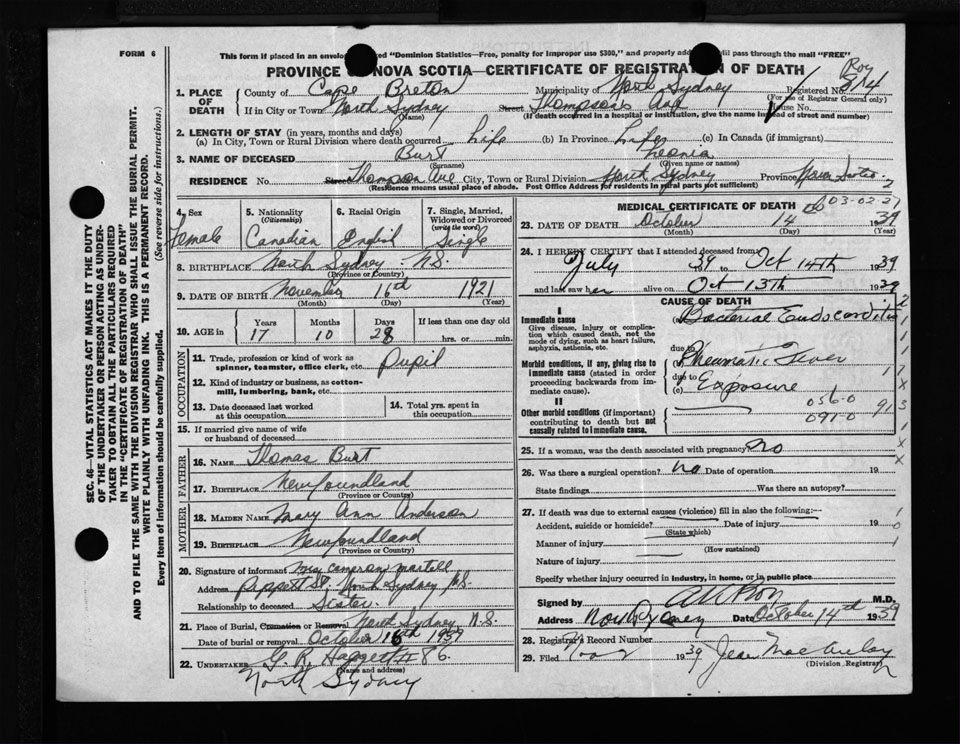 FORM 6
This form if placed in an envelope marked "Dominion Statistics—Free, penalty for improper use $300," and properly addressed will pass through the mail "FREE"
PROVINCE OF NOVA SCOTIA—CERTIFICATE OF REGISTRATION OF DEATH
Roy
814
1. PLACE OF DEATH
County of Cape Breton Municipality of North Sydney Registered No.
(For use of Registrar General only)
If in City or Town North Sydney Street Thompson's Ave House No.
(Name) (If death occurred in a hospital or institution, give the name instead of street and number)
2. LENGTH OF STAY (in years, months and days)
(a) In City, Town or Rural Division where death occurred Life (b) In Province Life (c) In Canada (if immigrant)
3. NAME OF DECEASED Burt Leonia
(Surname) (Given name or names)
RESIDENCE No. Street Thompson Ave City, Town or Rural Division North Sydney Province Nova Scotia 2
(Residence means usual place of abode. Post Office Address for residents in rural parts not sufficient)
SEC. 46—VITAL STATISTICS ACT MAKES IT THE DUTY
OF THE UNDERTAKER OR PERSON ACTING AS UNDER-
TAKER TO OBTAIN ALL THE PARTICULARS REQUIRED
IN THE "CERTIFICATE OF REGISTRATION OF DEATH"
AND TO FILE THE SAME WITH THE DIVISION REGISTRAR WHO SHALL ISSUE THE BURIAL PERMIT.
WRITE PLAINLY WITH UNFADING INK. THIS IS A PERMANENT RECORD.
Every item of information should be carefully supplied. (See reverse side for instructions.)
4. Sex
Female
5. Nationality
(Citizenship)
Canadian
6. Racial Origin
English
7. Single, Married,
Widowed or Divorced
(write the word)
Single
8. BIRTHPLACE North Sydney N.S.
(Province or Country)
9. DATE OF BIRTH November 16th 1921
(Month) (Day) (Year)
10. AGE in Years Months Days If less than one day old
17 10 28 hrs. or min.
OCCUPATION
11. Trade, profession or kind of work as
spinner, teamster, office clerk, etc. Pupil
12. Kind of industry or business, as cotton-
mill, lumbering, bank, etc.
13. Date deceased last worked
at this occupation
14. Total yrs. spent in
this occupation
15. If married give name of wife
or husband of deceased
FATHER
16. NAME Thomas Burt
17. BIRTHPLACE Newfoundland
(Province or Country)
MOTHER
18. MAIDEN NAME Mary Ann Anderson
19. BIRTHPLACE Newfoundland
(Province or Country)
20. Signature of informant Mrs Cameron Martell
Address Pippett St, North Sydney N.S.
Relationship to deceased Sister.
21. Place of Burial, Cremation or Removal North Sydney N.S.
Date of burial or removal October 16th 1939
22. UNDERTAKER G. R. Haggett # 86.
(Name and address)
North Sydney
MEDICAL CERTIFICATE OF DEATH 03-02-27
23. DATE OF DEATH October 14 1939
(Month) (Day) (Year)
24. I HEREBY CERTIFY that I attended deceased from
July 39 to Oct 14th 1939
and last saw her alive on Oct 13th 1939
CAUSE OF DEATH
I
Immediate cause
Give disease, injury or complica-
tion which caused death, not the
mode of dying, such as heart failure,
asphyxia, asthenia, etc.
Bacterial Endocarditis
due to
Morbid conditions, if any, giving rise to
immediate cause (stated in order
proceeding backwards from im-
mediate cause).
Rheumatic Fever
due to
(c) Exposure
056-0
091-0 91
II
Other morbid conditions (if important)
contributing to death but not
causally related to immediate cause.
25. If a woman, was the death associated with pregnancy? no
26. Was there a surgical operation? no Date of operation 19
State findings Was there an autopsy?
27. If death was due to external causes (violence) fill in also the following:—
Accident, suicide or homicide? Date of injury 19
(State which)
Manner of injury
(How sustained)
Nature of injury
Specify whether injury occurred in industry, in home, or in public place
Signed by M.D.
Address North Sydney Date October 14th 1939
28. Registrar's Record Number
29. Filed Nov 2 1939 Jean MacAulay
(Division Registrar)